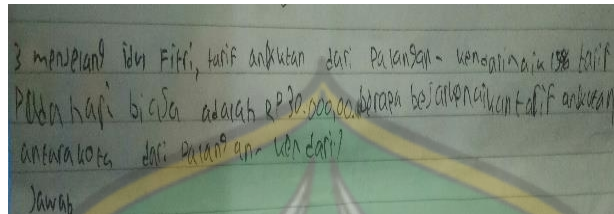 3 menjelang idul Fitri, tarif angkutan dari Palangan - kendari naik 15% tarif
Pada hari biasa adalah RP30.000,00. berapa besar kenaikan tarif angkutan
antar kota dari Palangan - kendari?
Jawab